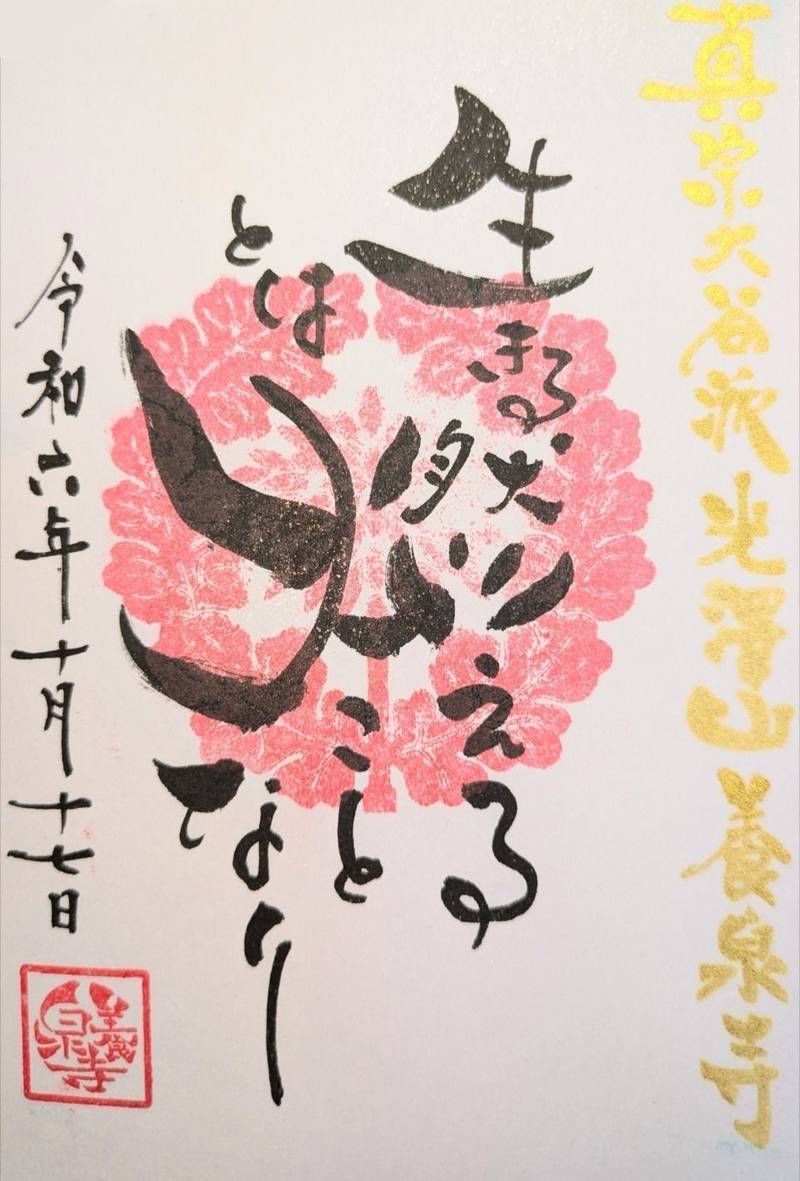 真宗大谷派 光澤山 養泉寺
生きる
とは
燃える
こと
なり
令和六年十月十七日
養泉寺